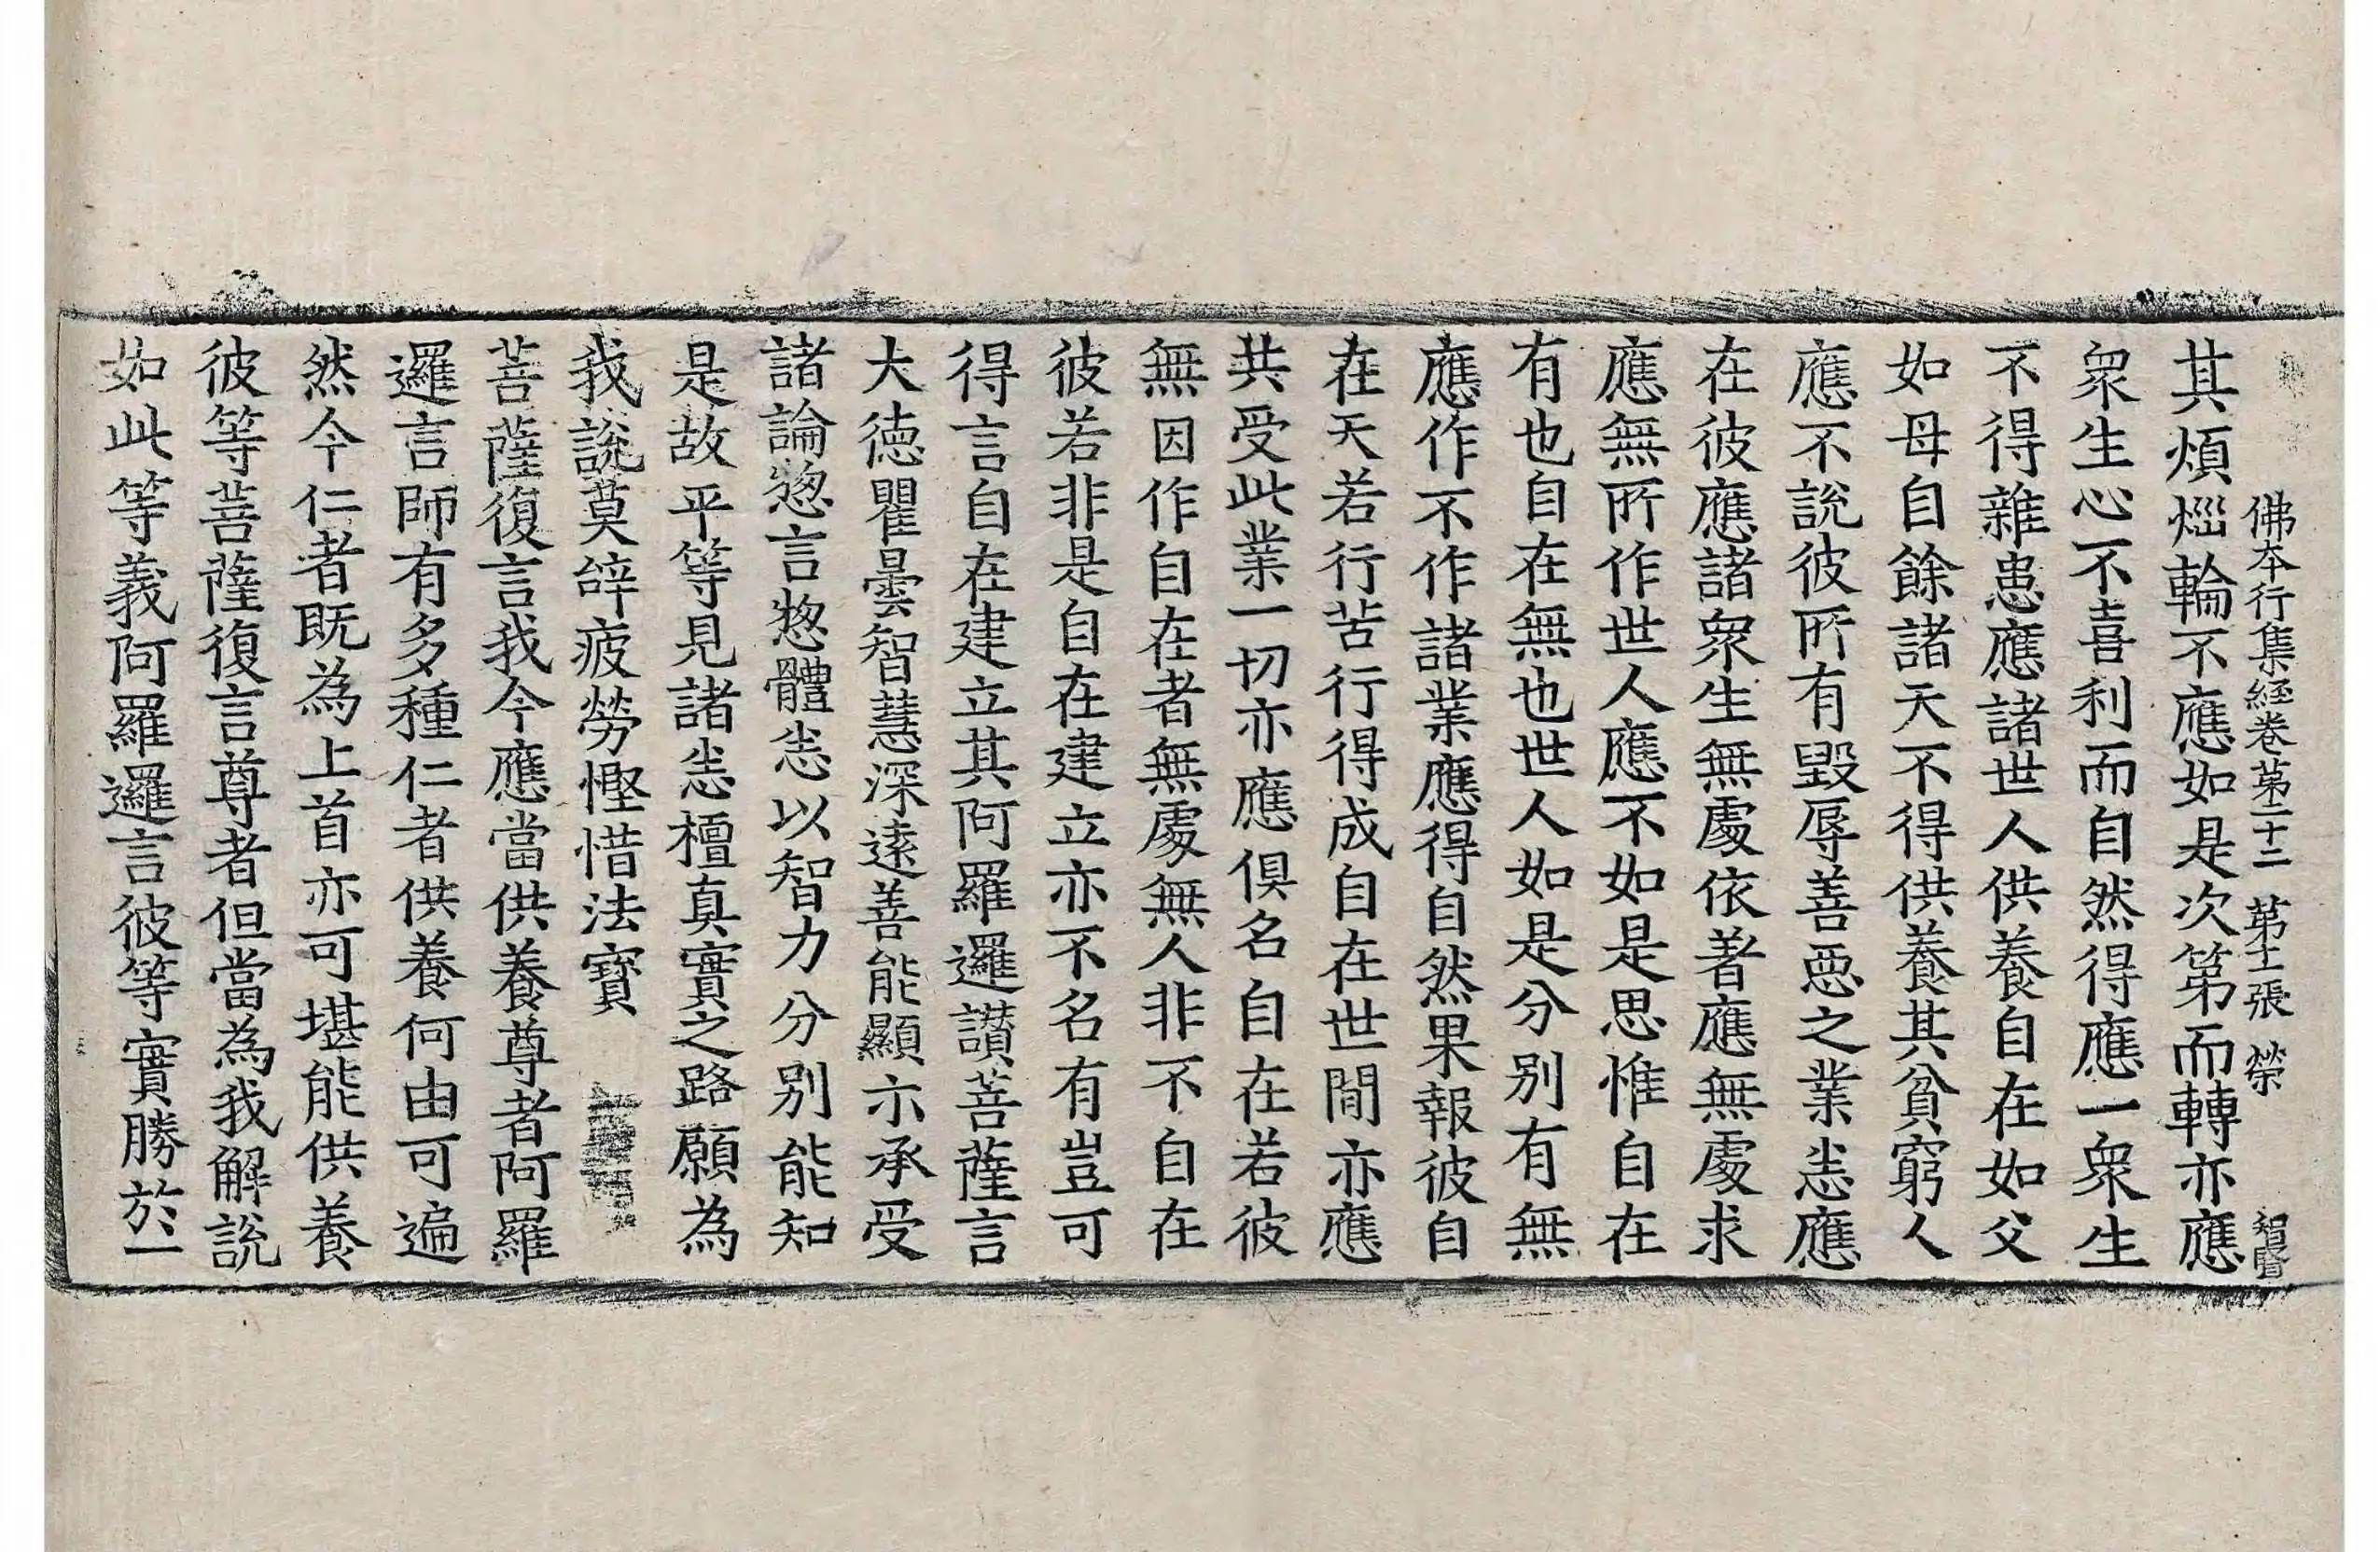 佛本行集經卷第二十二 第十一張 榮
其煩惱輪不應如是次第而轉亦應
眾生心不喜利而自然得應一眾生
不得雜患應諸世人供養自在如父
如母自餘諸天不得供養其貧窮人
應不說彼所有毀辱善惡之業恙應
在彼應諸眾生無處依著應無處求
應無所作世人應不如是思惟自在
有也自在無也世人如是分別有無
應作不作諸業應得自然果報彼自
在天若行苦行得成自在世間亦應
共受此業一切亦應俱名自在若彼
無因作自在者無處無人非不自在
彼若非是自在建立亦不名有豈可
得言自在建立其阿羅邏讚菩薩言
大德瞿曇智慧深遠善能顯示承受
諸論惣言惣體恙以智力分別能知
是故平等見諸恙檀真實之路願為
我說莫辞疲勞慳惜法寶
菩薩復言我今應當供養尊者阿羅
邏言師有多種仁者供養何由可遍
然今仁者既為上首亦可堪能供養
彼等菩薩復言尊者但當為我解說
如此等義阿羅邏言彼等實勝於一